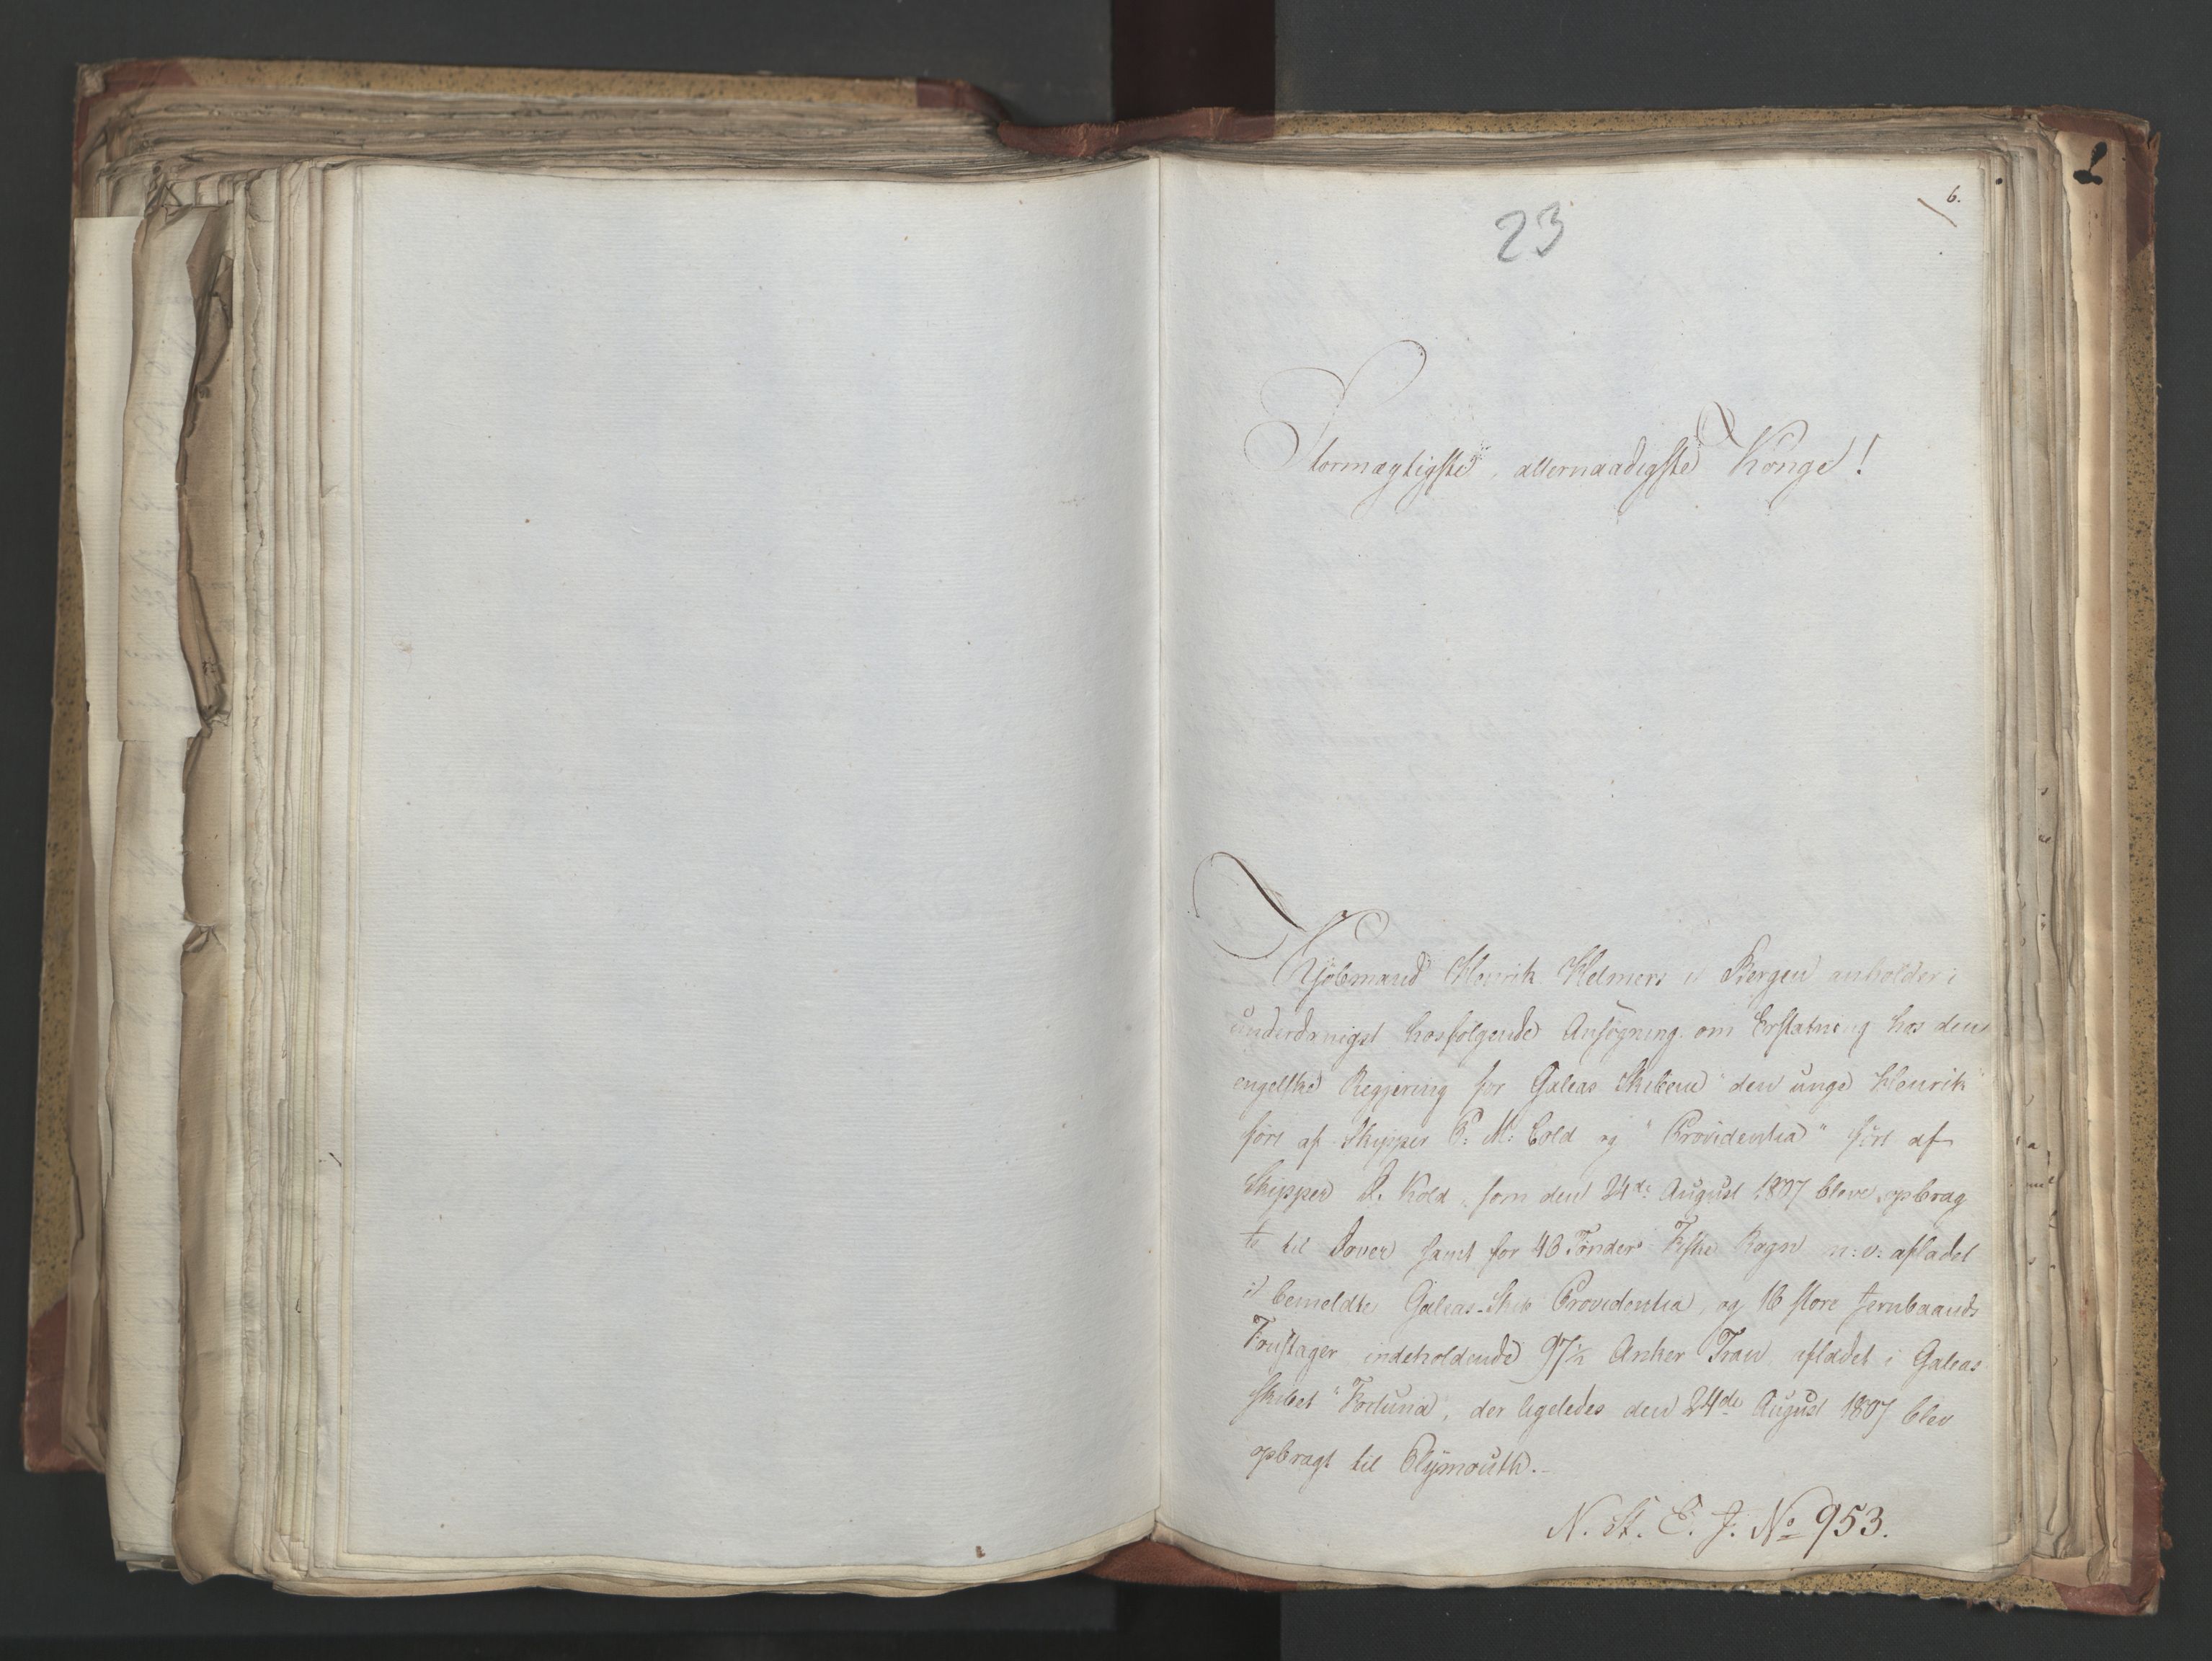 6.
23
Stormægtigste, allernaadigste Konge!
Kjöbmand Henrik Helmers i Bergen anholder i
underdanigst hosfölgende Ansögning om Erstatning hos den
engelske Regjering for Galeas Skibene "den unge Henrik"
fört af Skipper P: M: Cold og "Providentia" fört af
Skipper D. Kold, som den 24de August 1807 bleve opbrag
te til Dover samt for 46 Tönder Fiske Rogn m: v: afladet
i bemeldte Galeas-Skib Providentia, og 16 store Jernbaands
Foustager indeholdende 97½ Anker Tran, afladet i Galeas
skibet "Fortuna", der ligeledes den 24de August 1807 blev
opbragt til Plÿmouth.-
N. St. E. J. No 953.